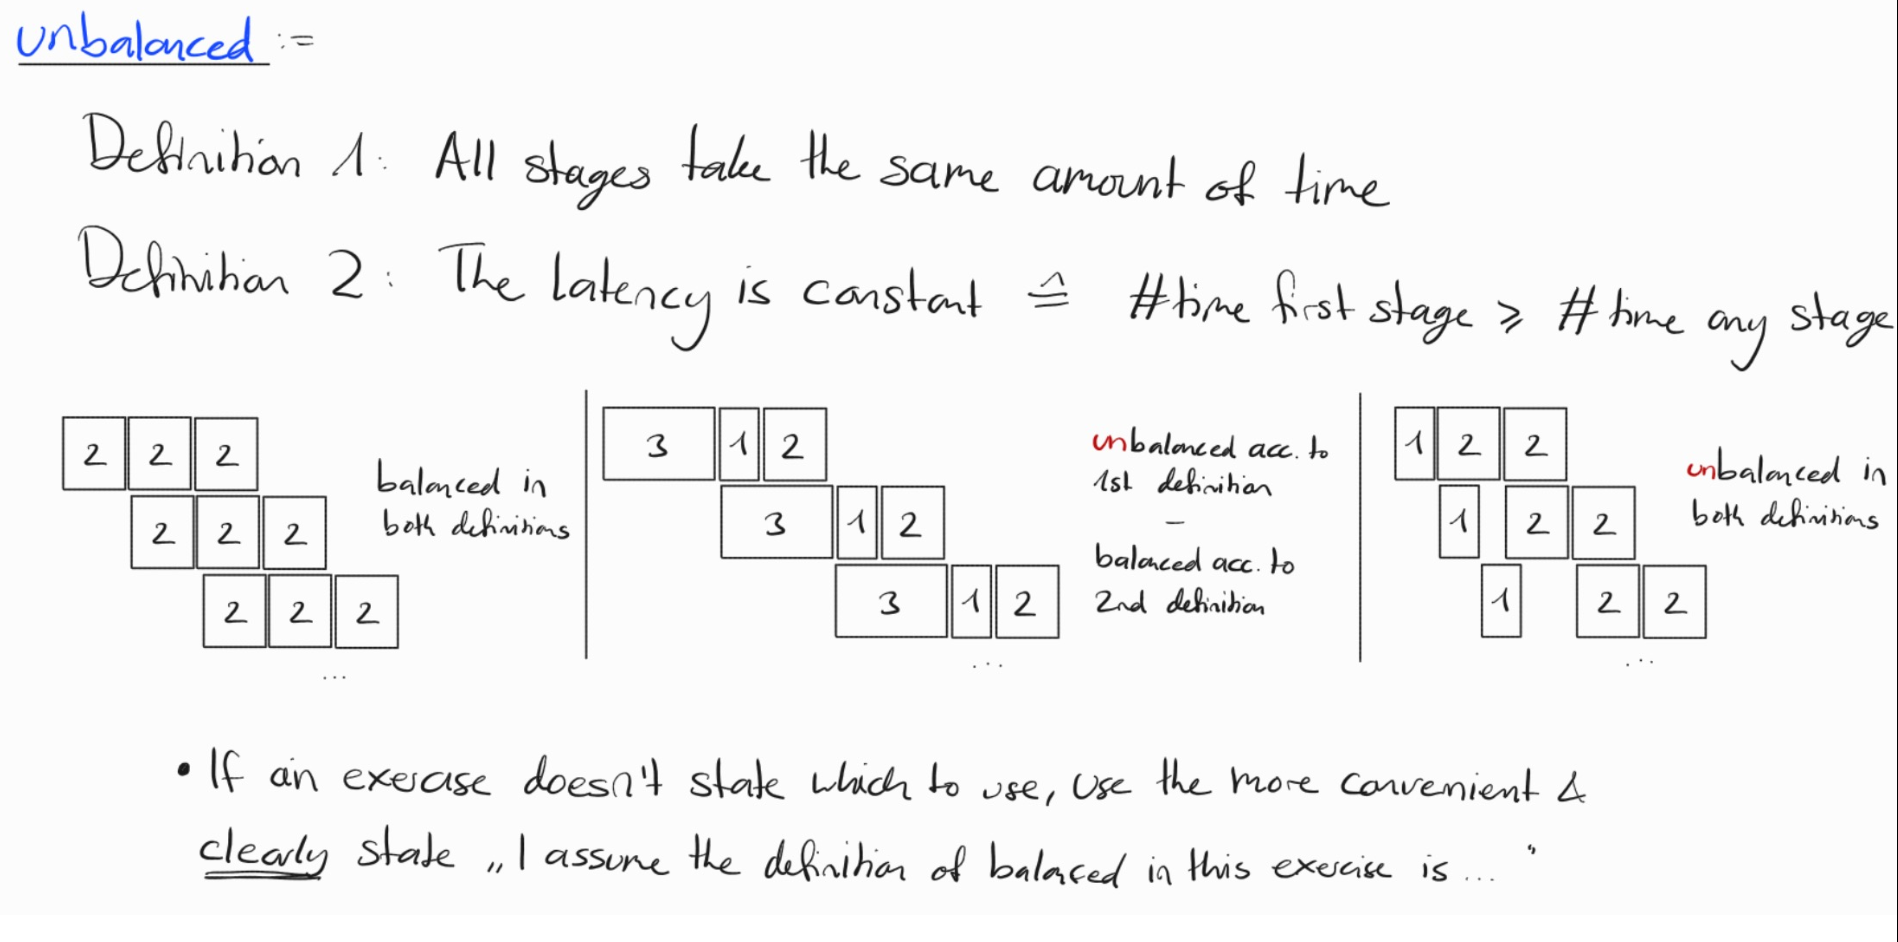 unbalanced :=
Definition 1: All stages take the same amount of time
Definition 2: The latency is constant ≙ #time first stage ≥ #time any stage
2 2 2
2 2 2
2 2 2
...
balanced in
both definitions
3 1 2
3 1 2
3 1 2
...
unbalanced acc. to
1st definition
–
balanced acc. to
2nd definition
1 2 2
1 2 2
1 2 2
...
unbalanced in
both definitions
• If an exercise doesn't state which to use, use the more convenient &
clearly state „I assume the definition of balanced in this exercise is ... "